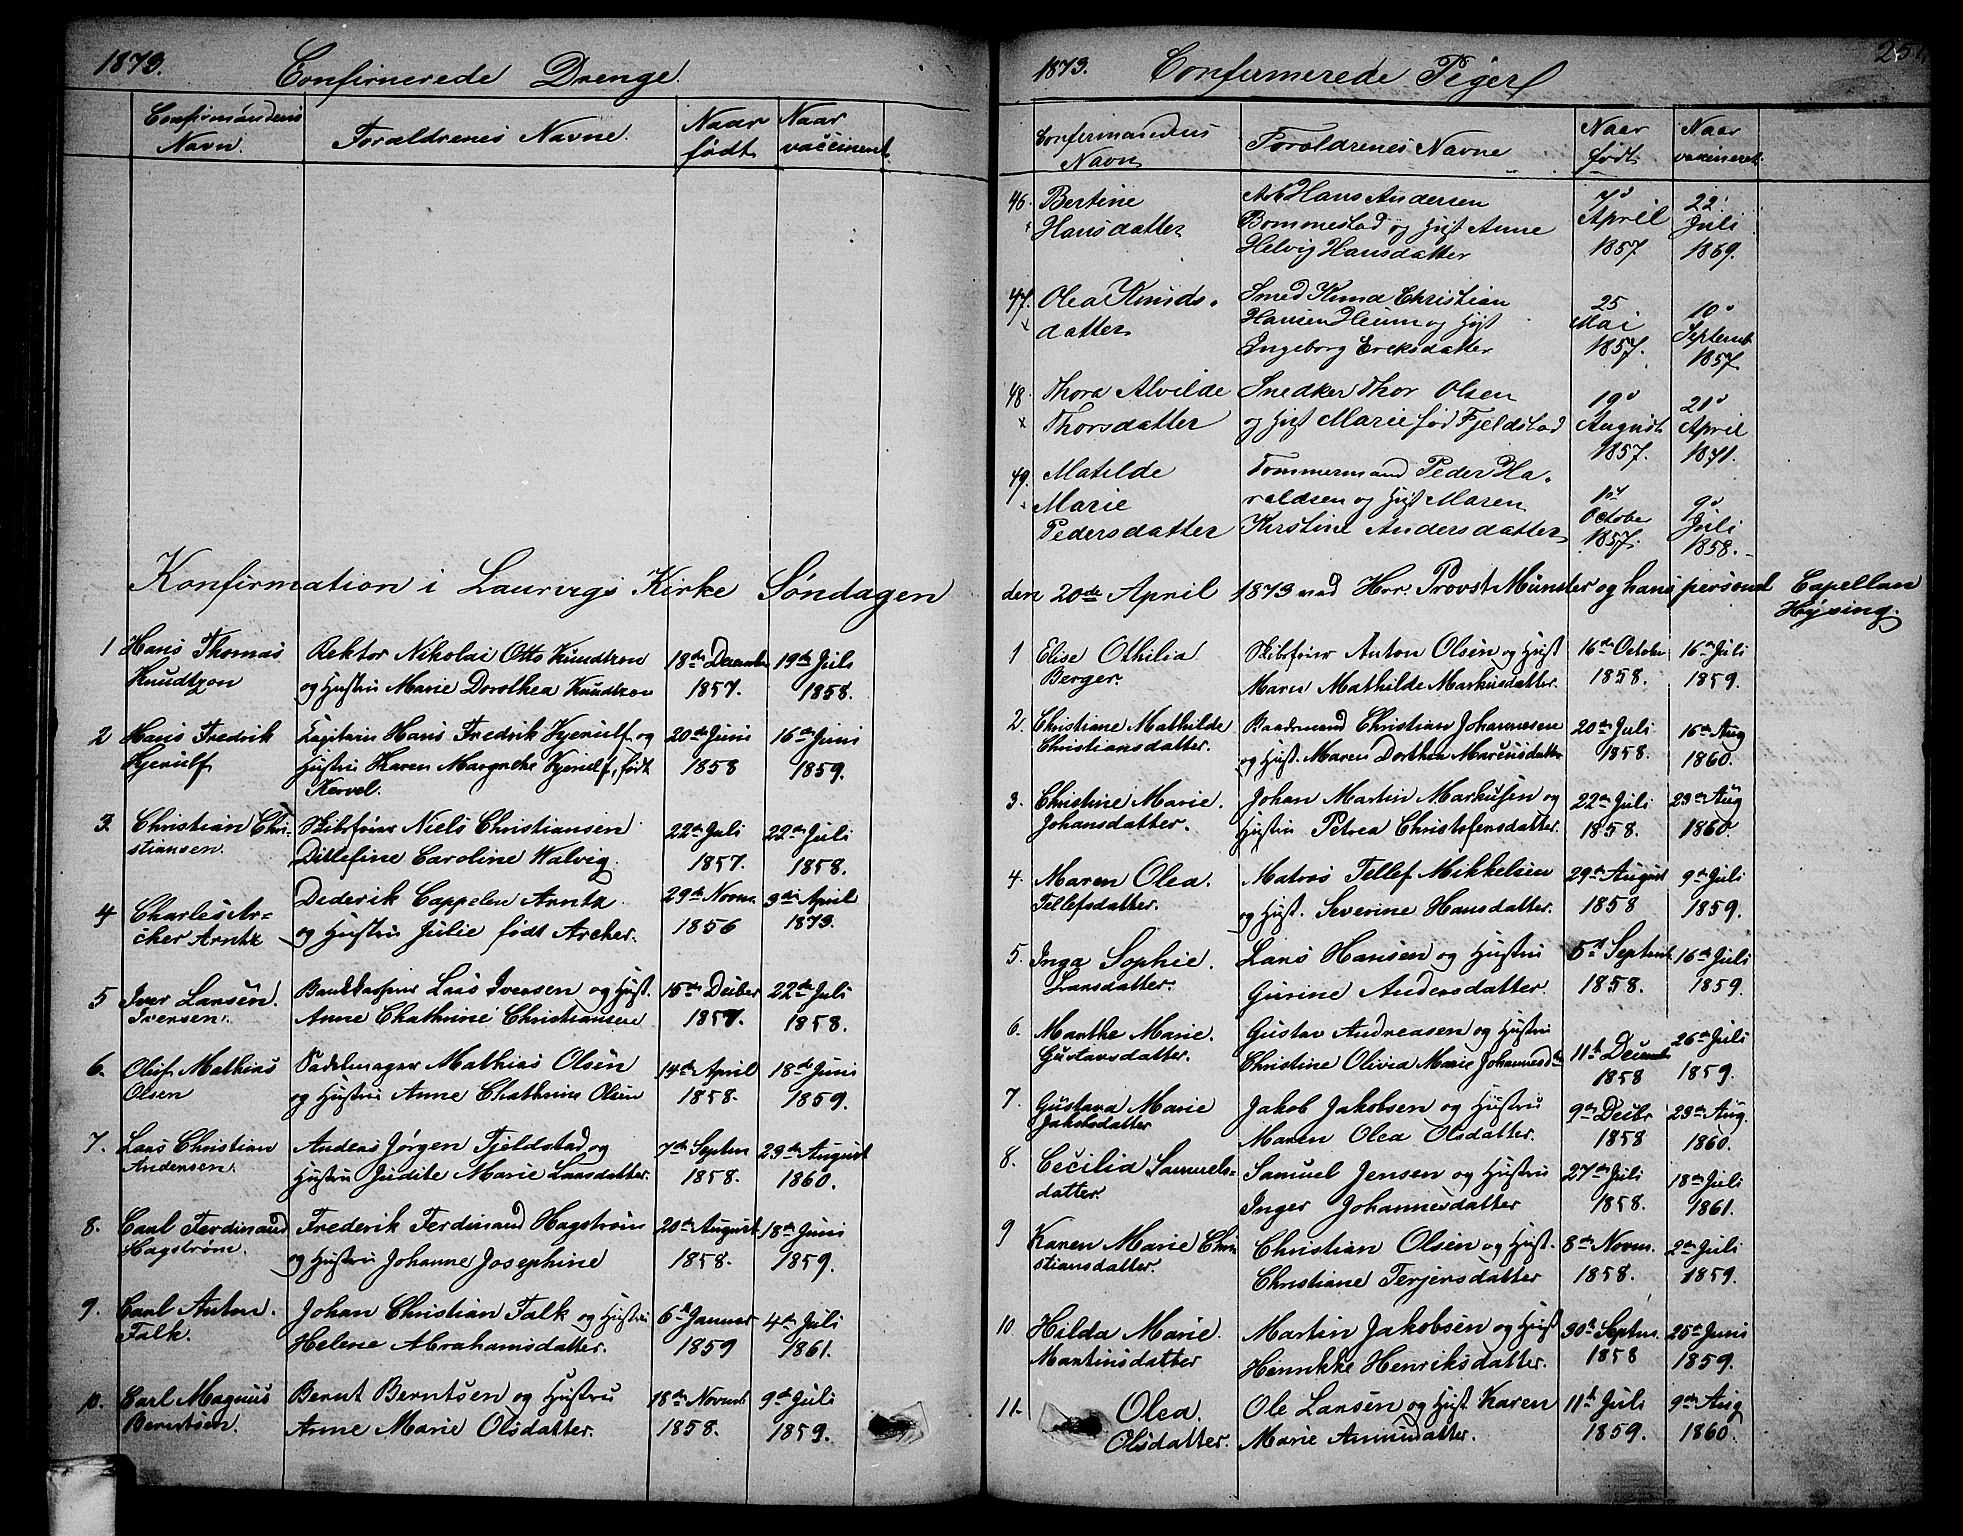 1873.
Confirmerede Drenge.
Confirmandens
Navn.
Forældrenes Navne.
Naar
født
Naar
vaccineret
Konfirmation i Laurvigs Kirke Søndagen
1 Hans Thomas Rektor Nikolai Otto Knudtzon 18de December 19de Juli
Knudtzon og Hustru Marie Dorothea Knudtzon 1857. 1858.
2 Hans Fredrik Kapitain Hans Fredrik Kjerulf og 20de Juni 16de Juni
Kjerulf Hustru Karen Margrethe Kjerulf, født 1858 1859.
3. Christian Chri- Skibsfører Niels Christiansen 22de Juli 22de Juli
stiansen. Ditlefine Caroline Walvig. 1857. 1858.
4 Charles Ar= Dederik Cappelen Arntz 29de Novm. 3de April
cher Arntz og Hustru Julie født Archer. 1856 1873.
5 Iver Larsen Lars Iversen og Hust. 15de Decber 22de Juli
Iversen. Anne Chathrine Christiansen 1857. 1858.
6. Oluf Mathias Sadelmager Mathias Olsen 14de April 18de Juni
Olsen og Hustru Anne Chathrine Olsen 1858. 1859.
7. Lars Christian Anders Jørgen Fjeldstad og 7de Septm 23de August
Andersen. Hustru Judite Marie Larsdatter. 1858. 1860.
8. Carl Ferdinand Frederik Ferdinand Hagstrøm 20de August 18de Juni
Hagstrøm. og Hustru Johanne Josephine 1858. 1859.
9. Carl Anton. Johan Christian Falk og Hustru 6te Januar 4de Juli
Falk. Helene Abrahamsdatter. 1859 1861.
10. Carl Magnus Bernt Berntsen og Hustru 18de Novmb 9de Juli
Berntsen. Anne Marie Olsdatter. 1858. 1859.
1873.
Confirmerede Piger
Confirmandens
Navn
Forældrenes Navne
Naar
født
Naar
vaccineret
46. Bertine Arb Hans Andersen 7d 22
Hansdatter Bommestad og Hust Anne April Juli
Helvig Hansdatter 1857 1869.
47. Olea Knuds- Smed Knud Christian 25 10d
datter Hansen Heum og Hust Mai Septemb
Ingeborg Ericksdatter 1857. 1857
48. Thora Alvilde Snedker Thor Olsen 19d 21d
x Thorsdatter og Hust Marie fød Fjeldstad August April
1857. 1871.
49. Matilde Tømmermand Peder Ha-
Marie raldsen og Hust Maren 9d
Pedersdatter Kirstine Andersdatter October Juli
1857. 1858.-
den 20de April 1873 ved Hrr. Provst Münster og hans personel Capellan
Høyning.
1 Elise Othilia Skibsfører Anton Olsen og Hust 16de October 16de Juli
Berger. Maren Mathilde Markusdatter. 1858. 1859.
2. Christiane Mathilde Baadsmand Christian Johannesen 20de Juli 15de Aug
Christiansdatter. og Hust. Maren Dorthea Marcusdatter 1858. 1860.
3. Christine Marie. Johan Martin Markusen og 22de Juli 23de Aug
Johansdatter. Hustru Petrea Christofersdatter. 1858. 1860.
4. Maren Olea. Matros Tellef Mikkelsen 29de August 9de Juli
Tellefsdatter. og Hust. Severine Hansdatter. 1858 1859.
5. Inga Sophie. Lars Hansen og Hustru 5te Septemb 16de Juli
Larsdatter. Gurine Andersdatter. 1858. 1859.
6. Marthe Marie. Gustav Andreasen og Hustru 26de Juli
Gustavsdatter. Christine Olivia Marie Johannesd 11te Decemb 1859.
1858
7. Gustava Marie Jakob Jakobsen og Hustru 9de Decbr 23de Aug.
Jakobsdatter Maren Olea Olsdatter. 1858 1860.
8. Cecilia Samuels= Samuel Jensen og Hustru 27de Juli 18de Juli
datter. Inger Johannesdatter 1858. 1861.
9 Karen Marie Chri Christian Olsen og Hust. 8de Novm. 2de Juli
stiansdatter. Christiane Terjersdatter 1858. 1859.
10. Hilda Marie. Martin Jakobsen og Hust 30de Septm. 25de Juni
Martinsdatter Henrikke Henriksdatter. 1858 1859.
11. Olea. Ole Larsen og Hust Karen 11te Juli 9de Aug
Olsdatter. Marie Amundsdatter. 1859. 1860.